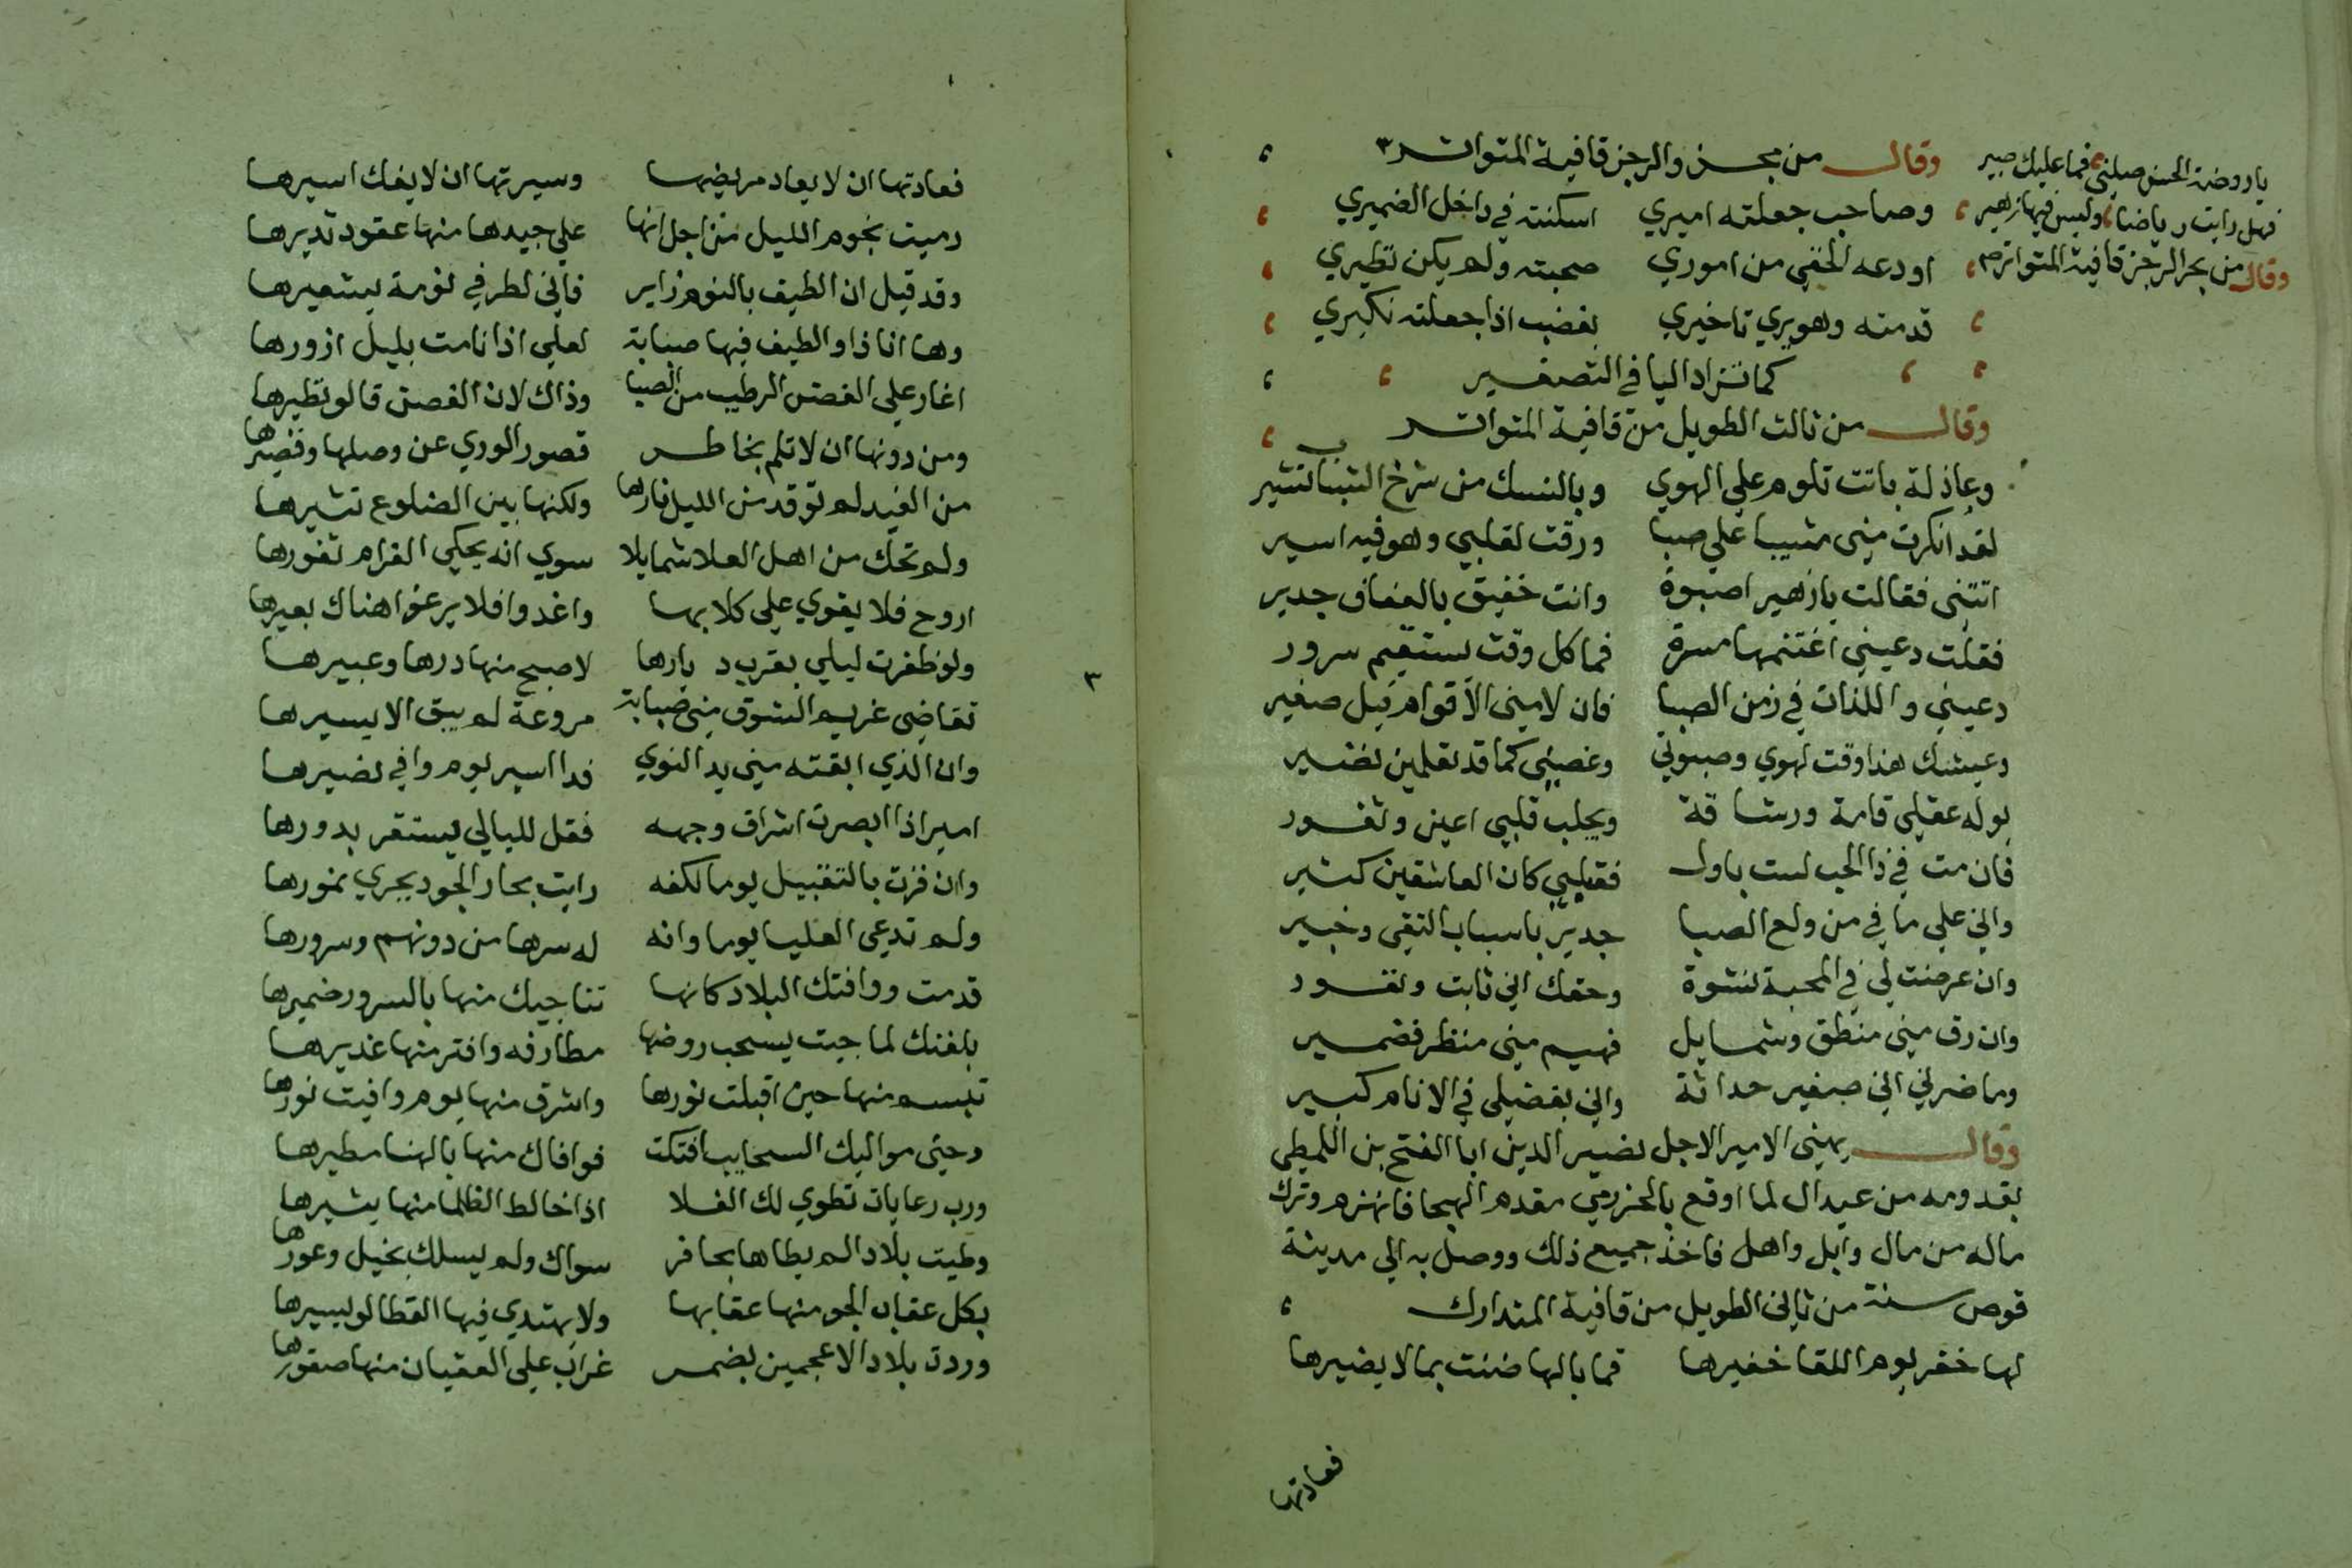 وقال من مجزو الرجز قافية المتواتر
وصاحب جعلته اميري اسكنته في داخل الضميري
اودعه الخفي من اموري صحبته ولم يكن نظيري
قدمته وهو يري تاخيري بغضب اذا جعلته نكبري
كما تزاد اليا في التصغير
وقال من ثالث الطويل من قافية المتواتر
وعاذلة باتت تلوم علي الهوي وبالنسك من شرخ الشباب تشير
لقد انكرت مني مشيبا علي صبا ورقت لقلبي وهو فيه اسير
اتتني فقالت يازهير اصبوة وانت خفيق بالعفاف جدير
فقلت دعيني اغتنمها مسرة فما كل وقت يستقيم سرور
دعيني واللذات في زمن الصبا فان لامني الاقوام قيل صغير
وعيشك هذا وقت لهوي وصبوتي وغصني كما قد تعلمين نضير
يوله عقلي قامة ورشاقة ويخلب قلبي اعين وثغور
فان مت في ذا الحب لست باول فقبلي كان العاشقين كثير
واني علي ما في من ولع الصبا جدير باسباب التقي وخبير
وان عرضت لي في المحبة نشوة وحقك اني ثابت وتقور
وان رق مني منطق وشمايل فهيم مني منظر فضمير
وما ضرني اني صغير حداثة واني بفضلي في الانام كبير
وقال يهني الامير الاجل نصير الدين ابا الفتح بن اللمطي
بقدومه من عيدال لما اوقع بالحزرمي مقدم الهجا فانهزم وترك
ماله من مال وابل واهل فاخذ جميع ذلك ووصل به الي مدينة
قوص سنة من ثاني الطويل من قافية المتدارك
لها خفر يوم اللقا خفيرها فما بالها ضنت بما لا يضيرها
فعادتها
ياروضة الحسن صلني فما عليك ضير
فهل رايت رياضا وليس فيها زهير
وقال من بحر الرجز قافية المتواتر
فعادتها ان لا يعاد مريضها وسيرتها ان لا يفك اسيرها
رميت نجوم الليل من اجل انها علي جيدها منها عقود تديرها
وقد قيل ان الطيف بالنوم زاير فاني لطرفي نومة يستعيرها
وها انا ذا والطيف فيها صبابة لعلي اذا نامت بليل ازورها
اغار علي الغصن الرطيب من الصبا وذاك لان الغصن قالو نظيرها
ومن دونها ان لا تلم بخاطر قصور الوري عن وصلها وقصيرها
من الغيد لم توقد من الليل نارها ولكنها بين الضلوع تثيرها
ولم تحك من اهل العلا شمايلا سوي انه يحكي الغرام ثغورها
اروح فلا يقوي علي كلابها واغدوا فلا يرغوا هناك بعيرها
ولو ظفرت ليلي بقرب ديارها لاصبح منها درها وعبيرها
تقاضي غريم الشوق مني صبابة مروعة لم يبق الا يسيرها
وان الذي ابقته مني يد النوي فدا اسير يوم وافي نصيرها
امير اذا ابصرت اشراق وجهه فقل لليالي يستقر بدورها
وان فزت بالتقبيل يوما لكفه رايت بحار الجود يجري نمورها
ولم تدعي العليا يوما وانه له سرها من دونهم وسرورها
قدمت ووافتك البلاد كانها تناجيك منها بالسرور ضميرها
بلغنك لما جيت يسحب روضها مطارفه وافتر منها غديرها
تبسم منها حين اقبلت نورها واشرق منها يوم وافيت نورها
وحتي مواليك السحايب افتكت فوافاك منها بالهنا مطيرها
ورب رعايات تطوي لك الفلا اذا خالط الظلما منها يشيرها
وطيت بلادا لم يطاها بحافر سواك ولم يسلك بخيل وعورها
بكل عقاب الجو منها عقابها ولا يهتدي فيها القطا لو يسيرها
وردت بلاد الاعجمين بضمر غراب علي العقيان منها صقورها
٣